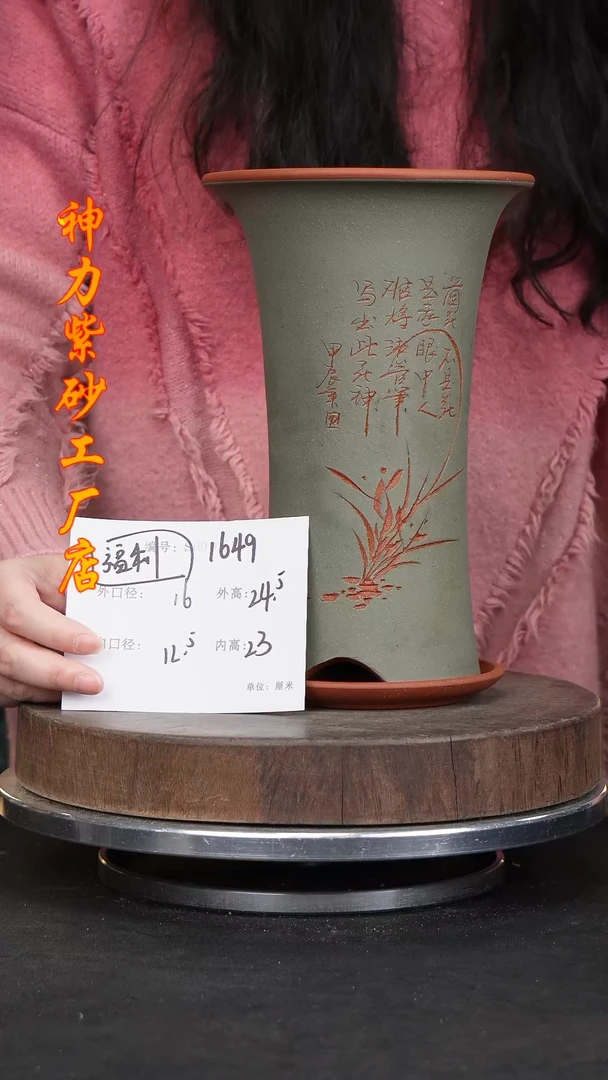 神力紫砂工厂店
兰花不是花
是我眼中人
难将湘管笔
写出此花神
甲辰年
福利 编号: 1649
外口径: 16 外高: 24.5
口径: 12.5 内高: 23
单位: 厘米